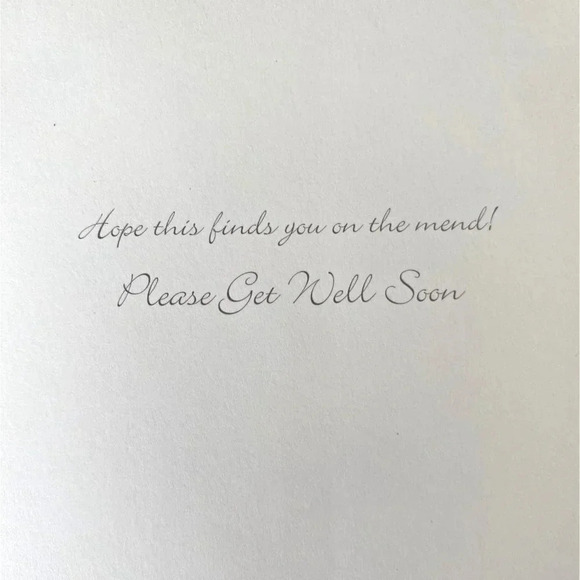 Hope this finds you on the mend!
Please Get Well Soon